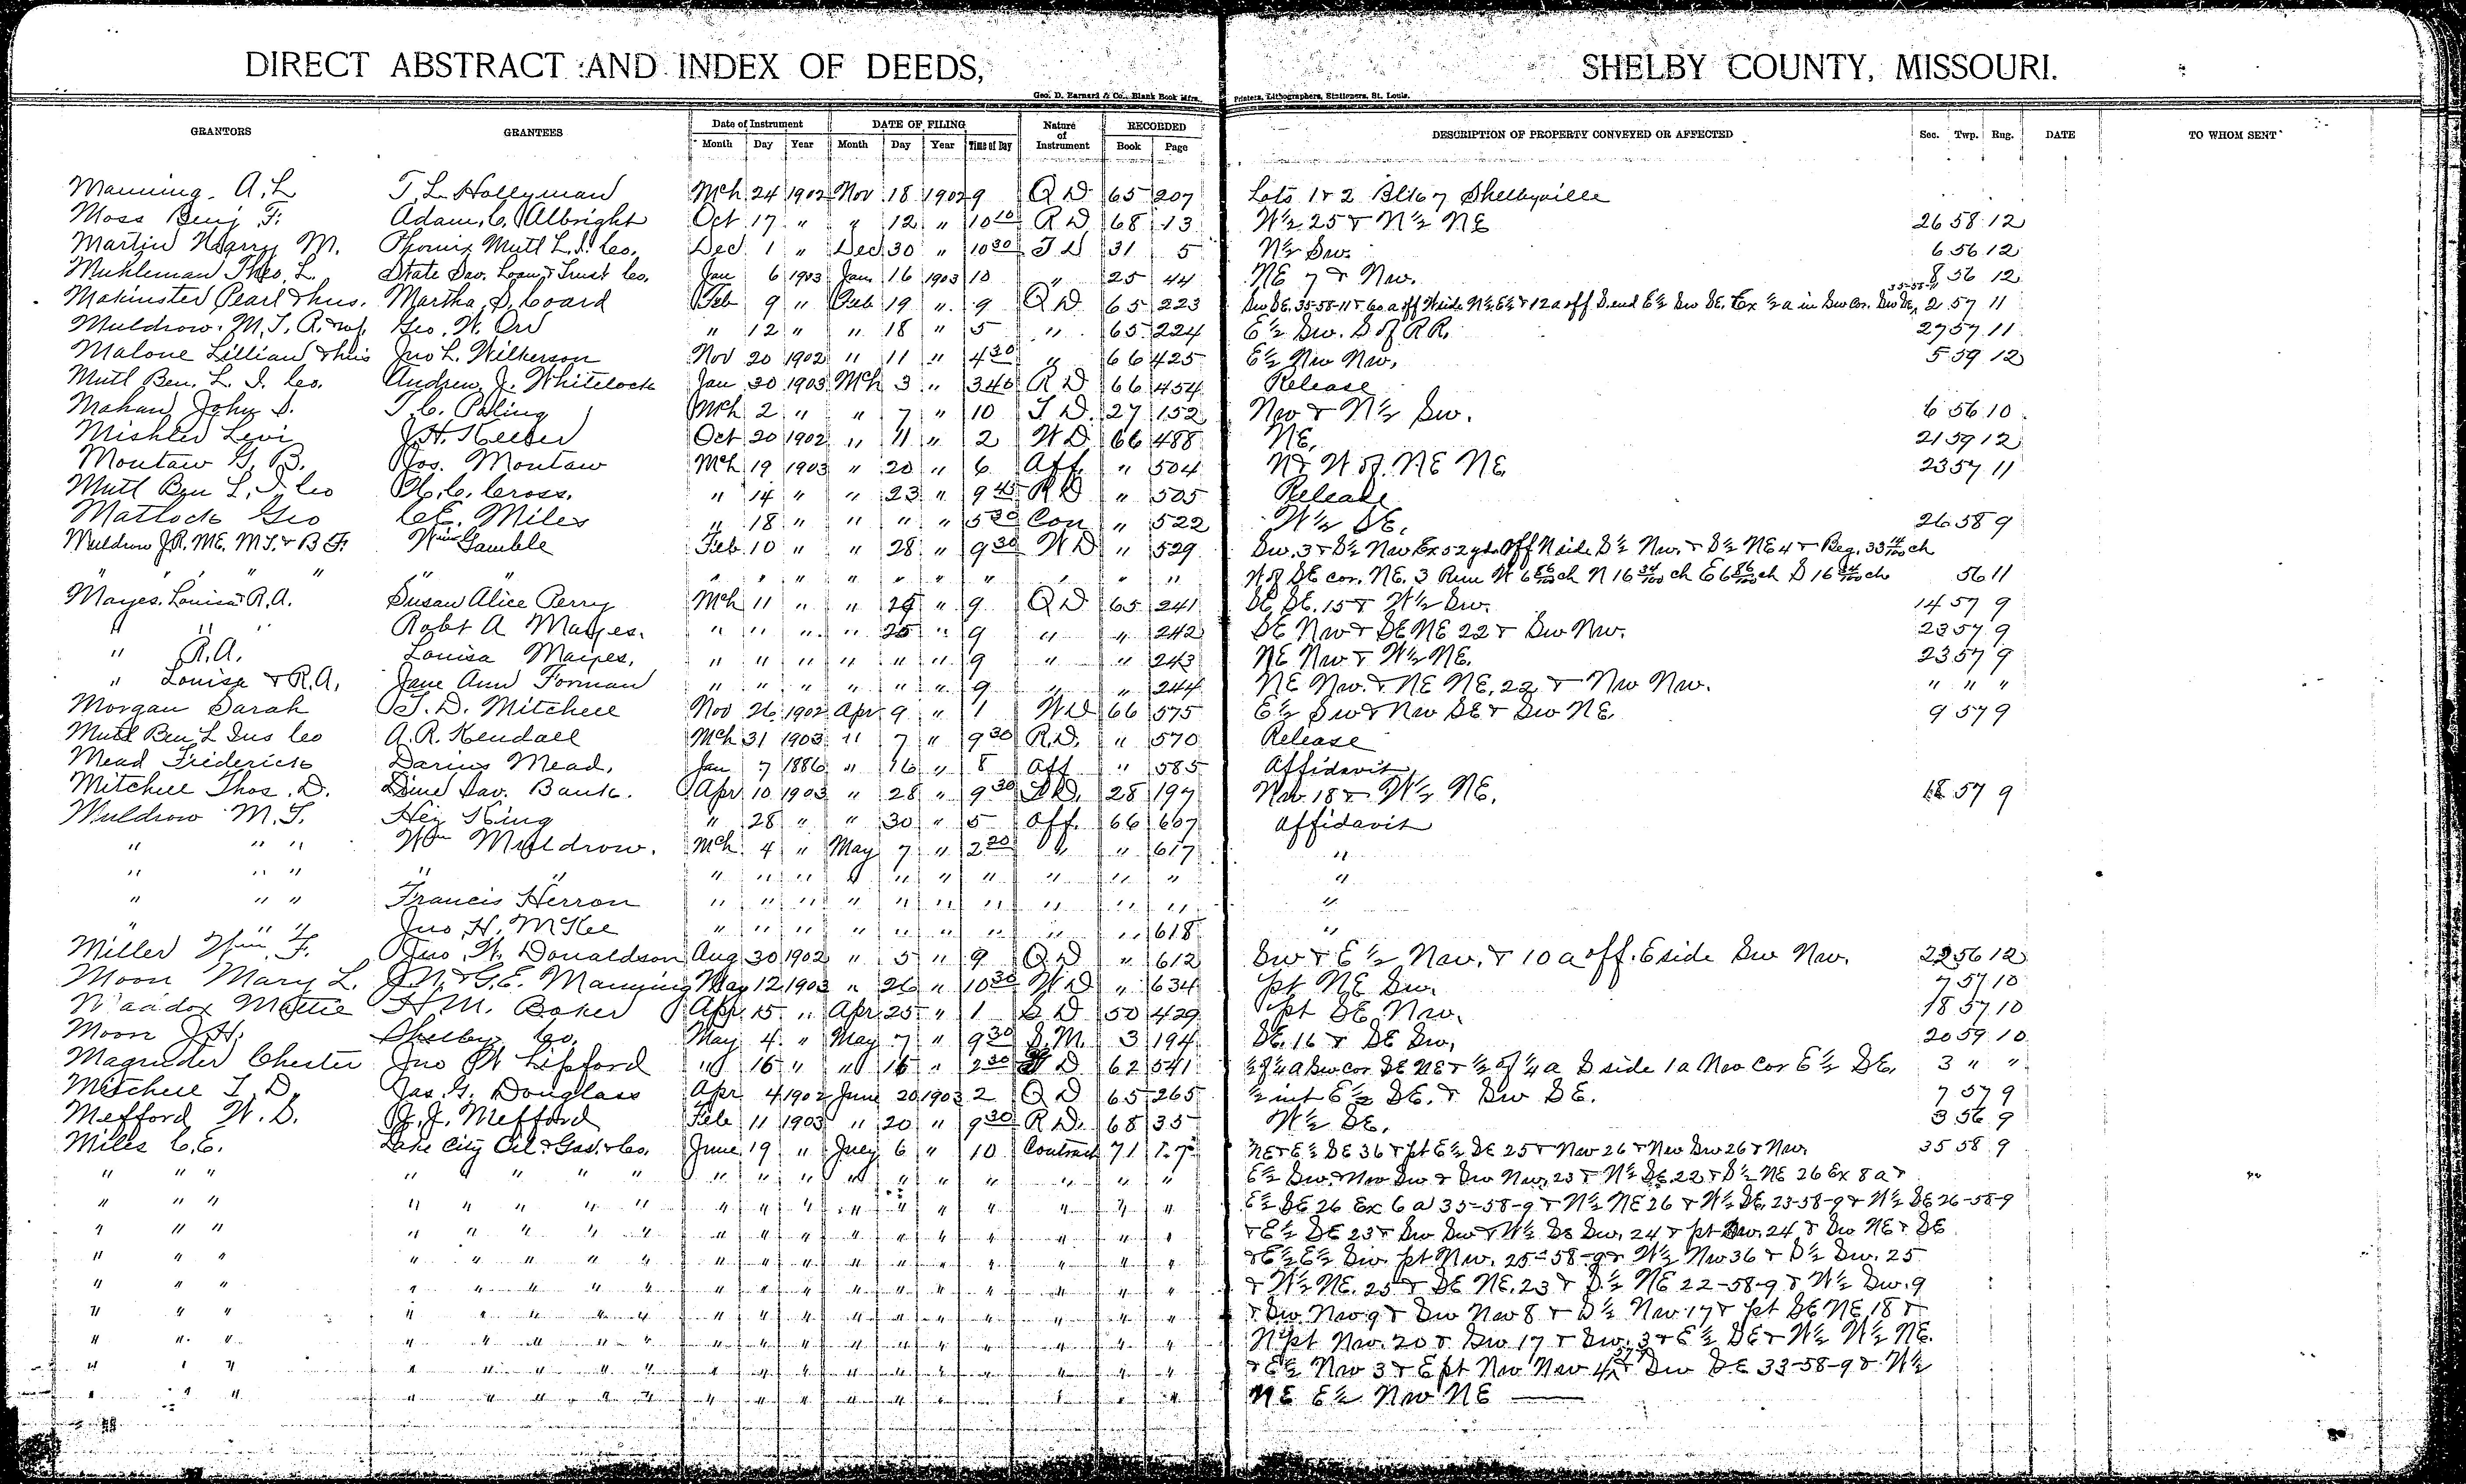 DIRECT ABSTRACT AND INDEX OF DEEDS, SHELBY COUNTY, MISSOURI.
Geo. D. Barnard & Co., Blank Book Mfrs., Printers, Lithographers, Stationers, St. Louis.
GRANTORS GRANTEES Date of Instrument DATE OF FILING Nature of Instrument RECORDED DESCRIPTION OF PROPERTY CONVEYED OR AFFECTED Sec. Twp. Rng. DATE TO WHOM SENT
Month Day Year Month Day Year Time of Day Book Page
Manning A. L T. L. Hollyman Mch 24 1902 Nov 18 1902 9 Q D 65 207 Lots 1 & 2 Blk 7 Shelbyville
Moss Benj F. Adam C. Albright Oct 17 " " 12 " 10 10 R D 68 13 W½ 25 & N½ NE 26 58 12
Martin Harry M. Phoenix Mutl L. I. Co. Dec 1 " Dec 30 " 10 30 T D 31 5 N½ Sw. 6 56 12
Muhleman Theo. L. State Sav. Loan & Trust Co. Jan 6 1903 Jan 16 1903 10 " 25 44 NE 7 & Nw. 8 56 12
Makinster Pearl & hus. Martha S. Coard Feb 9 " Feb 19 " 9 Q D 65 223 Sw SE. 35-58-11 & 60 a off W side N½ E½ & 12 a off S end E½ Sw SE. Ex ½ a in Sw Cor. Sw SE, 35-58-11 2 57 11
Muldrow. M. T. R. & wf. Geo. W. Orr " 12 " " 18 " 5 " 65 224 E½ Sw. S of R R. 27 57 11
Malone Lillian & his Jno L. Wilkerson Nov 20 1902 " 11 " 4 30 " 66 425 E½ Nw Nw, 5 59 12
Mutl Ben. L. I. Co. Andrew J. Whitelock Jan 30 1903 Mch 3 " 3 40 R D 66 454 Release
Mahan John S. T. C. Poling Mch 2 " " 7 " 10 T D. 27 152 Nw & N½ Sw. 6 56 10
Mishler Levi J. H. Keeser Oct 20 1902 " 11 " 2 W D 66 488 NE, 21 59 12
Montaw G. B. Jos. Montaw Mch 19 1903 " 20 " 6 Aff. " 504 N & W of NE NE 23 57 11
Mutl Ben L. I. Co H. C. Cross. " 14 " " 23 " 9 45 R D " 505 Release
Matlock Geo C. E. Miles " 18 " " " " 5 30 Con " 522 W½ SE. 26 58 9
Muldrow J. R. M E. M T. & B F. Wm Gamble Feb 10 " " 28 " 9 30 W D " 529 Sw. 3 & S½ Nw Ex 52 yds. Off N side S½ Nw. & S½ NE 4 & Beg. 33 14/100 ch
" " " " " " " " " " " " " " " W of SE cor. NE. 3 Run W 6 86/100 ch N 16 34/100 ch E 6 86/100 ch S 16 34/100 ch 56 11
Mayes. Louisa & R. A. Susan Alice Perry Mch 11 " " 25 " 9 Q D 65 241 SE SE. 15 & W½ Sw. 14 57 9
" " " Robt A Mayes. " " " " 25 " 9 " " 242 SE Nw & SE NE 22 & Sw Nw. 23 57 9
" R. A. Louisa Mayes. " " " " " " 9 " " 243 NE Nw & W½ NE. 23 57 9
" Louisa & R. A. Jane Ann Forman " " " " " " 9 " " 244 NE Nw. & NE NE. 22 & Nw Nw. " " "
Morgan Sarah T. D. Mitchell Nov 26 1902 Apr 9 " 1 W D 66 575 E½ Sw & Nw SE & Sw NE. 9 57 9
Mutl Ben L Ins Co A. R. Kendall Mch 31 1903 " 7 " 9 30 R. D. " 570 Release
Mead Frederick Darius Mead, Jan 7 1886 " 16 " 8 Aff " 585 Affidavit
Mitchell Thos. D. Dime Sav. Bank. Apr 10 1903 " 28 " 9 30 T D. 28 197 Nw. 18 & W½ NE. 18 57 9
Muldrow M. T. Hez King " 28 " " 30 " 5 Aff. 66 607 Affidavit
" " " Wm Muldrow. Mch. 4 " May 7 " 2 20 " " 617 "
" " " " " " " " " " " " " " " "
" " " Francis Herron " " " " " " " " " " "
" " " Jno H. McKee " " " " " " " " " 618 "
Miller Wm. F. Jno. W. Donaldson Aug 30 1902 " 5 " 9 Q D " 612 Sw & E½ Nw. & 10 a off. E side Sw Nw. 22 56 12
Moon Mary L. J. N. & G. E. Manning May 12 1903 " 26 " 10 30 W D " 634 pt NE Sw. 7 57 10
Maddox Mattie H. M. Baker Apr. 15 " Apr 25 " 1 S D 50 429 pt SE Nw. 18 57 10
Moon J. H. Shelby Co. May 4 " May 7 " 9 30 S. M. 3 194 SE. 16 & SE Sw, 20 59 10
Magruder Chester Jno W Lipford " 16 " " 16 " 2 30 W D 62 541 ½ of ¼ a Sw cor SE NE & ½ of ¼ a S side 1 a Nw Cor E½ SE, 3 " "
Mitchell T. D. Jas. G. Douglass Apr 4 1902 June 20 1903 2 Q D 65 265 ½ int E½ SE. & Sw SE. 7 57 9
Mefford W. S. J. J. Mefford Feb 11 1903 " 20 " 9 30 R D. 68 35 W½ SE. 3 56 9
Miles C. E. Lake City Oil & Gas. Co. June 19 " July 6 " 10 Contract 71 NE & E½ SE 36 & pt E½ SE 25 & Nw 26 & Nw Sw 26 & Nw. 35 58 9
" " " " " " " " " " " " " " " " " E½ Sw. & Nw Sw & Sw Nw. 23 & N½ SE. 22 & S½ NE 26 Ex 8 a &
" " " " " " " " " " " " " " " " " E½ SE 26 Ex 6 a 35-58-9 & N½ NE 26 & W½ SE. 23-58-9 & W½ SE 26-58-9
" " " " " " " " " " " " " " " " " & E½ SE 23 & Sw Sw & W½ SE Sw. 24 & pt Sw. 24 & Sw NE & SE
" " " " " " " " " " " " " " " " " & E½ E½ Sw. pt Nw. 25-58-9 & W½ Nw 36 & S½ Sw. 25
" " " " " " " " " " " " " " " " " & W½ NE. 25 & SE NE. 23 & S½ NE 22-58-9 & W½ Sw. 9
" " " " " " " " " " " " " " " " " & Sw Nw 9 & Sw Nw 8 & S½ Nw 17 & pt SE NE 18 &
" " " " " " " " " " " " " " " " " N pt Nw. 20 & Sw 17 & Sw. 3 & E½ SE & W½ W½ NE.
" " " " " " " " " " " " " " " " " & E½ Nw 3 & E pt Nw Nw 4 & Sw SE 33-58-9 & W½
" " " " " " " " " " " " " " " " " NE E½ Nw NE